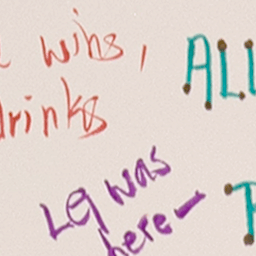 wins,
drinks
ALL
LG was
here-